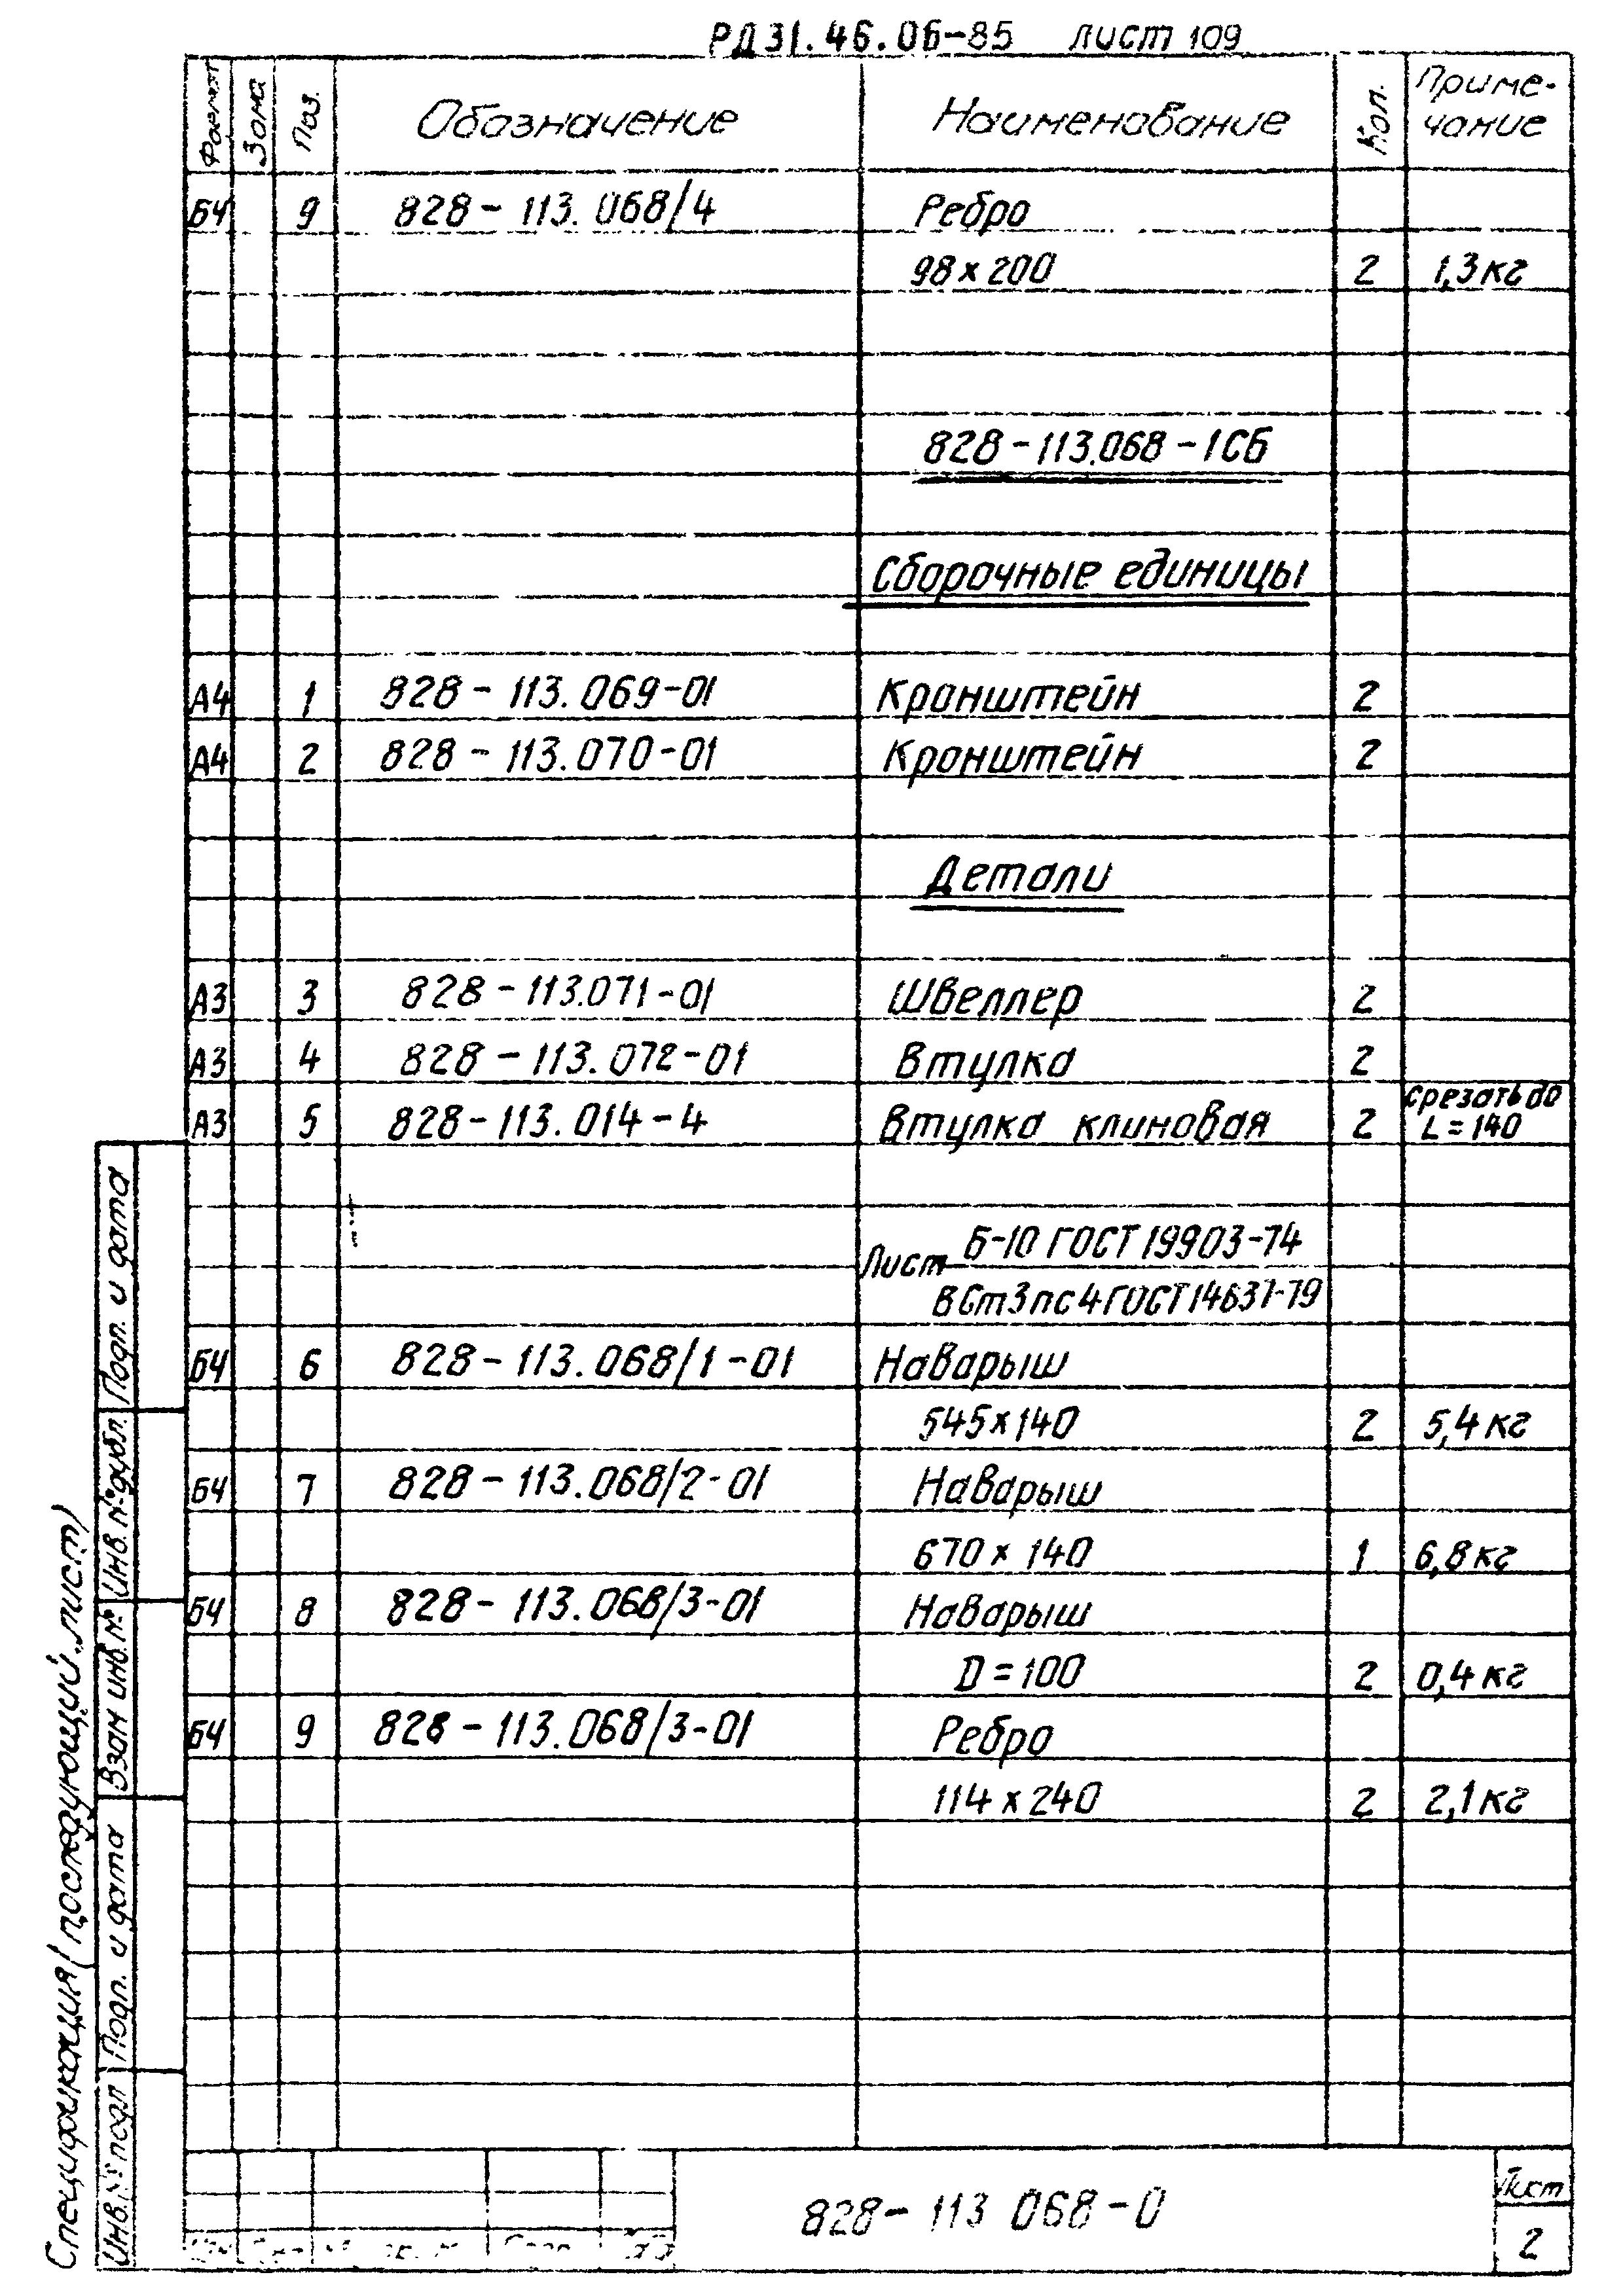 РД 31.46.06-85 лист 109
Формат Зона Поз. Обозначение Наименование Кол. Приме-
чание
БЧ 9 828-113.068/4 Ребро
98×200 2 1,3кг
828-113.068-1СБ
Сборочные единицы
А4 1 828-113.069-01 Кронштейн 2
А4 2 828-113.070-01 Кронштейн 2
Детали
А3 3 828-113.071-01 Швеллер 2
А3 4 828-113.072-01 Втулка 2
А3 5 828-113.014-4 Втулка клиновая 2 срезать до
L=140
Лист Б-10 ГОСТ 19903-74
ВСт3пс4 ГОСТ 14637-79
БЧ 6 828-113.068/1-01 Наварыш
545×140 2 5,4кг
БЧ 7 828-113.068/2-01 Наварыш
670×140 1 6,8кг
БЧ 8 828-113.068/3-01 Наварыш
D=100 2 0,4кг
БЧ 9 828-113.068/3-01 Ребро
114×240 2 2,1кг
828-113 068-0
Лист
2
Спецификация (последующий лист)
Инв.№ подл
Подп. и дата
Взам инв.№
Инв. №дубл.
Подп. и дата